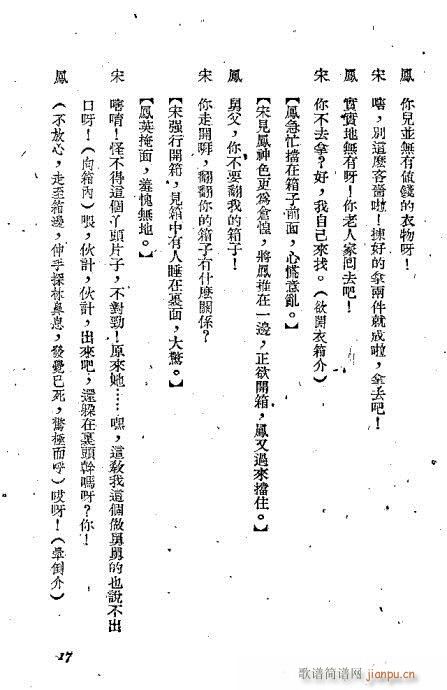 鳳　你兒並無有值錢的衣物呀！
宋　嗐，別這麽客嗇啦！揀好的拿兩件就成啦，拿去吧！
鳳　實實地無有呀！你老人家囘去吧！
宋　你不去拿？好，我自己來找。（欲開衣箱介）
【鳳急忙擋在箱子前面，心慌意亂。】
【宋見鳳神色更爲倉惶，將鳳推在一邊，正欲開箱，鳳又過來擋住。】
鳳　舅父，你不要翻我的箱子！
宋　你走開啊，翻翻你的箱子有什麽關係？
【宋强行開箱，見箱中有人睡在裏面，大驚。】
【鳳英掩面，羞愧無地。】
宋　嗐唷！怪不得這個丫頭片子，不對勁！原來她……嘿，這教我這個做舅舅的也說不出
口呀！（向箱內）喂，伙計，伙計，出來吧，還躲在裏頭幹嗎呀？你！
鳳　（不放心，走至箱邊，伸手探林鼻息，發覺已死，驚極而呼）哎呀！（暈倒介）
17
歌谱简谱网
jianpu.cn